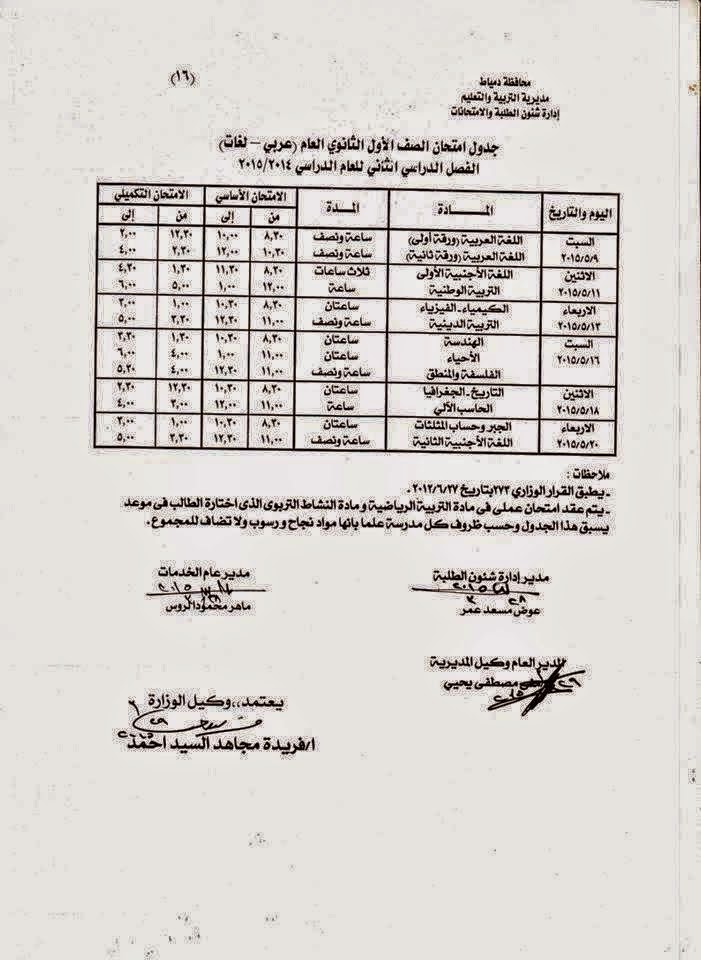 (١٦)
محافظة دمياط
مديرية التربية والتعليم
إدارة شئون الطلبة والامتحانات
جدول امتحان الصف الأول الثانوي العام (عربي – لغات)
الفصل الدراسي الثاني للعام الدراسي ٢٠١٥/٢٠١٤
اليوم والتاريخ المــادة المــدة الامتحان الأساسي الامتحان التكميلي
من إلى من إلى
السبت اللغة العربية (ورقة أولى) ساعة ونصف ٨,٣٠ ١٠,٠٠ ١٢,٣٠ ٢,٠٠
٢٠١٥/٥/٩ اللغة العربية (ورقة ثانية) ساعة ونصف ١٠,٣٠ ١٢,٠٠ ٢,٣٠ ٤,٠٠
الاثنين اللغة الأجنبية الأولى ثلاث ساعات ٨,٣٠ ١١,٣٠ ١,٣٠ ٤,٣٠
٢٠١٥/٥/١١ التربية الوطنية ساعة ١٢,٠٠ ١,٠٠ ٥,٠٠ ٦,٠٠
الاربعاء الكيمياء - الفيزياء ساعتان ٨,٣٠ ١٠,٣٠ ١,٠٠ ٣,٠٠
٢٠١٥/٥/١٣ التربية الدينية ساعة ونصف ١١,٠٠ ١٢,٣٠ ٣,٣٠ ٥,٠٠
السبت الهندسة ساعتان ٨,٣٠ ١٠,٣٠ ١,٣٠ ٣,٣٠
٢٠١٥/٥/١٦ الأحياء ساعتان ١١,٠٠ ١,٠٠ ٤,٠٠ ٦,٠٠
الفلسفة والمنطق ساعة ونصف ١١,٠٠ ١٢,٣٠ ٤,٠٠ ٥,٣٠
الاثنين التاريخ - الجغرافيا ساعتان ٨,٣٠ ١٠,٣٠ ١٢,٣٠ ٢,٣٠
٢٠١٥/٥/١٨ الحاسب الآلي ساعة ١١,٠٠ ١٢,٠٠ ٣,٠٠ ٤,٠٠
الاربعاء الجبر وحساب المثلثات ساعتان ٨,٣٠ ١٠,٣٠
٢٠١٥/٥/٢٠ اللغة الأجنبية الثانية ساعة ونصف ١١,٠٠ ١٢,٣٠ ٥,٠٠
ملاحظات :
- يطبق القرار الوزاري ٢٧٣ بتاريخ ٢٠١٢/٦/٢٧
- يتم عقد امتحان عملى فى مادة التربية الرياضية و مادة النشاط التربوى الذى اختارة الطالب فى موعد
يسبق هذا الجدول وحسب ظروف كل مدرسة علما بانها مواد نجاح و رسوب ولا تضاف للمجموع.
مدير إدارة شئون الطلبة
عوض مسعد عمر
مدير عام الخدمات
ماهر محمود الروس
المدير العام وكيل المديرية
مصطفى يحيي
يعتمد،، وكيل الوزارة
ا/فريدة مجاهد السيد احمد